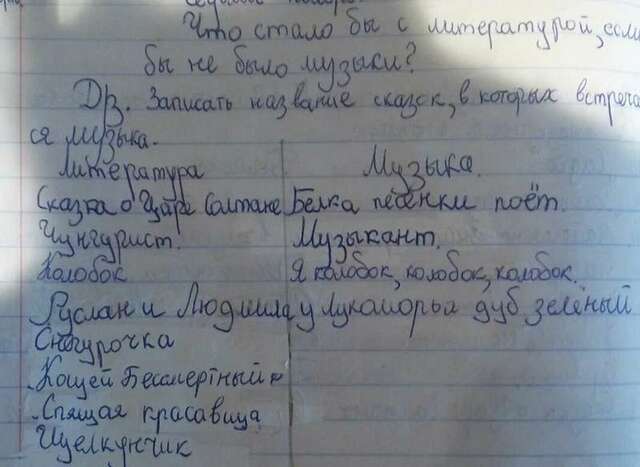 Что стало бы с литературой, если
бы не было музыки?
Дз. Записать название сказок, в которых встреча
ся музыка.
Литература Музыка.
Сказка о Царе Салтане Белка песенки поёт.
Чунгурист. Музыкант.
Колобок Я колобок, колобок, колобок.
Руслан и Людмила у Лукоморья дуб зелёный
Снегурочка
Кощей Бессмертный
Спящая красавица
Щелкунчик